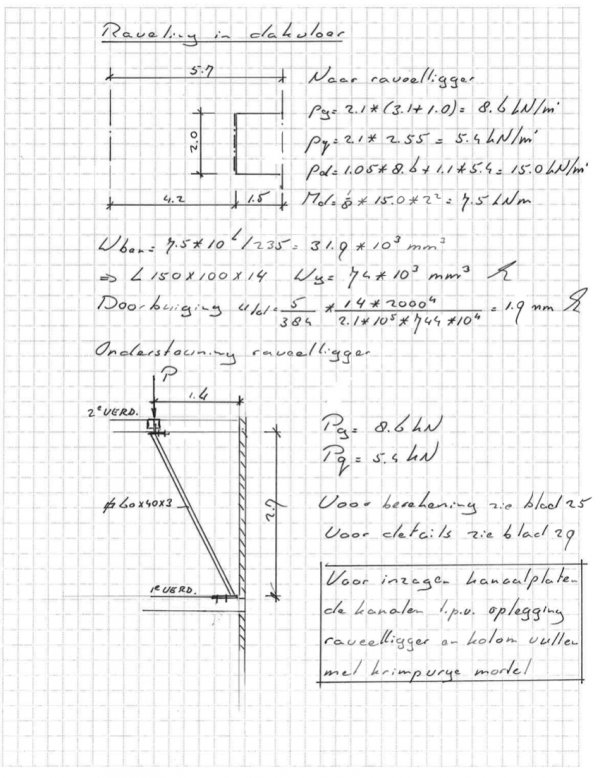 Raveling in dakvloer
5.7
2.0
4.2
1.5
Naar raveelligger
pg = 2.1 * (3.1 + 1.0) = 8.6 kN/m'
pq = 2.1 * 2.55 = 5.4 kN/m'
pd = 1.05 * 8.6 + 1.1 * 5.4 = 15.0 kN/m'
Md = 1/8 * 15.0 * 2² = 7.5 kNm
Wben = 7.5 * 10⁶ / 235 = 31.9 * 10³ mm³
⇒ L 150 x 100 x 14 Wy = 74 * 10³ mm³
Doorbuiging = 5/384 * 14 * 2000⁴ / 2.1 * 10⁵ * 744 * 10⁴ = 1.9 mm
Ondersteuning raveelligger
P
1.4
2e VERD.
60x40x3
2.7
1e VERD.
Pg = 8.6 kN
Pq = 5.4 kN
Voor berekening zie blad 25
Voor details zie blad 29
Voor inzagen kanaalplaten
de kanalen t.p.v. oplegging
raveelligger en kolom vullen
met krimpvrije mortel